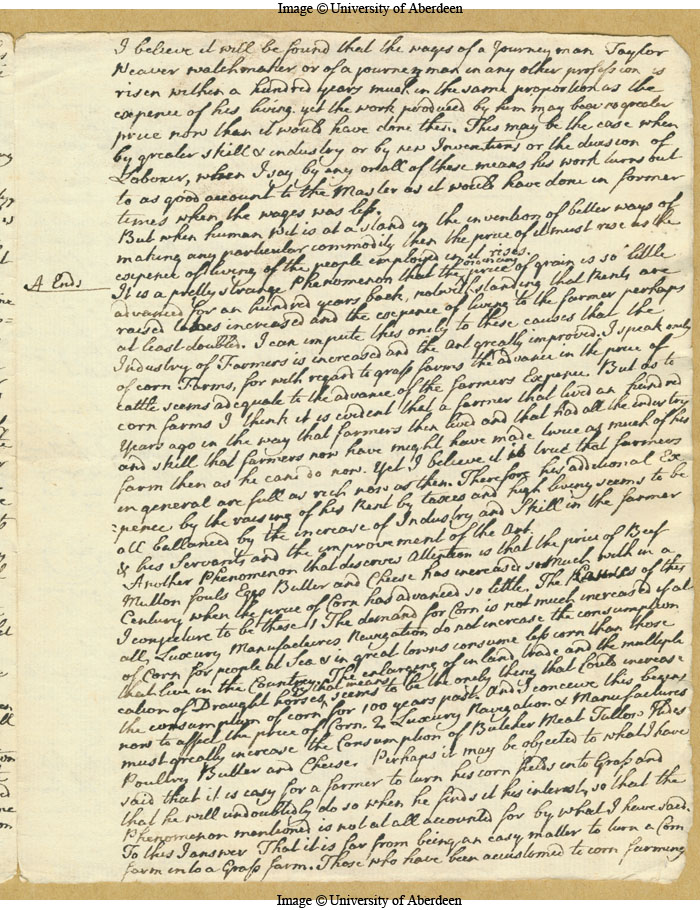 Image © University of Aberdeen
I believe it will be found that the wages of a Journeyman Taylor
Weaver watchmaker, or of a journeyman in any other profession is
risen within a hundred years much in the same proportion as the
expence of his living. yet the work produced by him may bear no greater
price now than it would have done then. This may be the case when
by greater skill & industry or by new Inventions or the division of
Labour, when I say by any or all of these means his work turns out
to as good account to the Master as it would have done in former
times when the wages was less.
But when human wit is at a stand in the invention of better ways of
making any particular commodity then the price of it must rise as the
expence of living of the people employed in it rises.
A Ends
It is a pretty strange Phenomenon that the ordinary price of grain is so little
advanced for an hundred years back, notwithstanding that Rents are
raised taxes increased and the expence of living to the farmer perhaps
at least doubled. I can impute this only to these causes that the
Industry of Farmers is increased and the Art greatly improved. I speak only
of corn Farms, for with regard to grass farms the advance in the price of
cattle seems adequate to the advance of the farmers Expence. But as to
corn farms I think it is evident that a farmer that lived an hundred
Years ago in the way that farmers then lived and that had all the industry
and skill that farmers now have might have made twice as much of his
farm then as he can do now. Yet I believe it is true that farmers
in general are full as rich now as then. Therefore his additional Ex
pence by the raising of his Rent by taxes and high living seems to be
all ballanced by the increase of Industry and Skill in the farmer
& his Servants and the improvement of the Art.
Another Phenomenon that deserves Attention is that the price of Beef
Mutton fouls Eggs Butter and Cheese has increased so much with in a
Century when the price of Corn has advanced so little. The Causes of this
I conjecture to be these 1 The demand for Corn is not much increased if at
all, Luxury Manufactures Navigation do not increase the consumption
of Corn for people at Sea & in great towns consume less corn than those
that live in the Country. The enlarging of in land trade and the multipli
cation of Draught horses by that means seems to be the only thing that could increase
the consumption of corn for 100 years past. And I conceive this begins
now to affect the price of Corn. 2 Luxury Navigation & Manufactures
must greatly increase the Consumption of Butcher Meat Tallow Hides
Poultry Butter and Cheese. Perhaps it may be objected to what I have
said that it is easy for a farmer to turn his corn fields into Grass and
that he will undoubtedly do so when he finds it his interest, so that the
Phenomenon mentioned is not at all accounted for by what I have said.
To this I answer That it is far from being an easy matter to turn a Corn
farm in to a Grass farm. Those who have been accustomed to corn farming
Image © University of Aberdeen